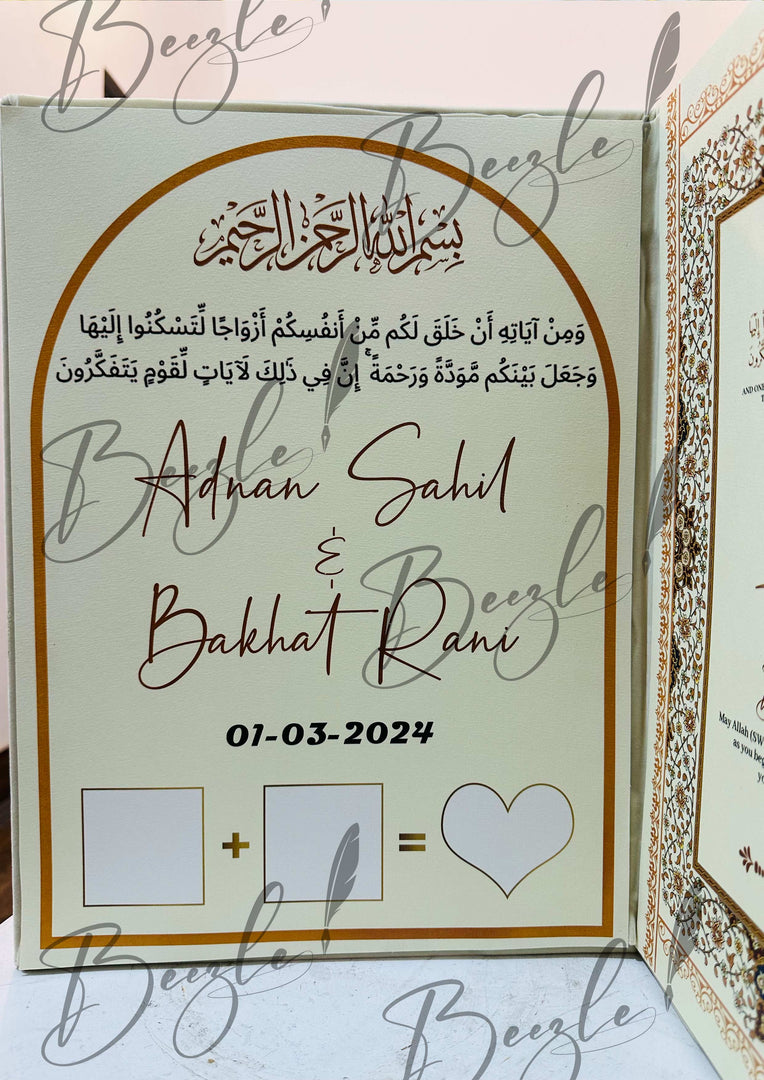 بِسْمِ اللهِ الرَّحْمٰنِ الرَّحِيْمِ
وَمِنْ آيَاتِهِ أَنْ خَلَقَ لَكُم مِّنْ أَنفُسِكُمْ أَزْوَاجًا لِّتَسْكُنُوا إِلَيْهَا
وَجَعَلَ بَيْنَكُم مَّوَدَّةً وَرَحْمَةً ۚ إِنَّ فِي ذَٰلِكَ لَآيَاتٍ لِّقَوْمٍ يَتَفَكَّرُونَ
Adnan Sahil
&
Bakhat Rani
01-03-2024
+ =
AND ONE
May Allah (SW
as you beg
Beezle
Beezle
Beezle
Beezle
Beezle
Beezle